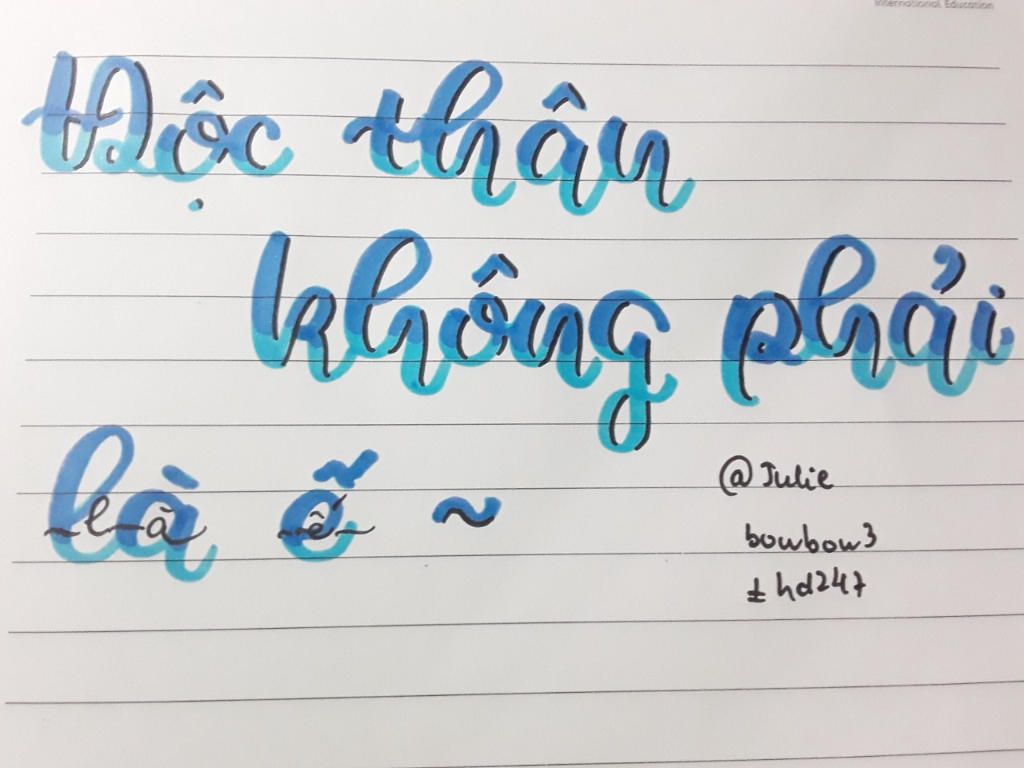 International Education
Độc thân
không phải
là ế ~
@Julie
bowbow3
±hd247